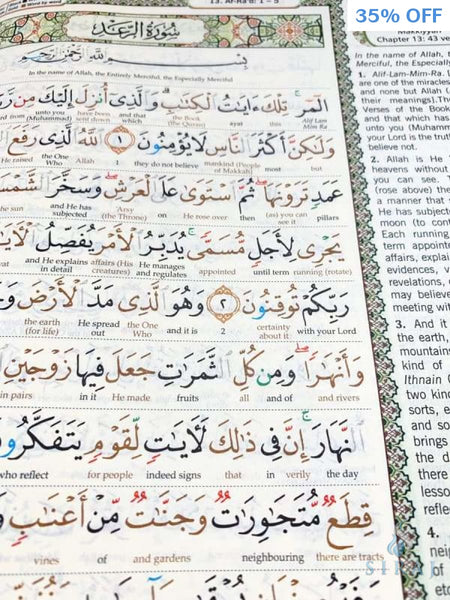 35% OFF
13. Ar-Ra'd: 1 – 5
سُورَةُ الرَّعْدِ
بِسْمِ اللَّهِ الرَّحْمَٰنِ الرَّحِيمِ
In the name of Allah, the Entirely Merciful, the Especially Merciful
الٓمٓر ۚ تِلْكَ ءَايَٰتُ ٱلْكِتَٰبِ ۗ وَٱلَّذِىٓ أُنزِلَ إِلَيْكَ مِن
Alif Lam Mim Ra
this ayat the Book (the Quran) and that which have been sent down unto you (Muhammad) from
وَلَٰكِنَّ أَكْثَرَ ٱلنَّاسِ لَا يُؤْمِنُونَ ١ ٱللَّهُ ٱلَّذِى رَفَعَ
but most mankind (People of Makkah) they do not believe 1 Allah the One Who He raised
عَمَدٍ تَرَوْنَهَا ۖ ثُمَّ ٱسْتَوَىٰ عَلَى ٱلْعَرْشِ ۖ وَسَخَّرَ ٱلشَّمْسَ
pillars (as) you can see it then He rose over on 'Arsy (the Throne) and He has subjected the sun
يَجْرِى لِأَجَلٍ مُّسَمًّى ۚ يُدَبِّرُ ٱلْأَمْرَ يُفَصِّلُ
running (rotate) until term appointed He manages and regulates affairs (His creatures) and He explains in detail
رَبِّكُمْ تُوقِنُونَ ٢ وَهُوَ ٱلَّذِى مَدَّ ٱلْأَرْضَ
with your Lord certainty about it 2 and it is the One Who He spread out the earth (for life)
وَأَنْهَٰرًا ۖ وَمِن كُلِّ ٱلثَّمَرَٰتِ جَعَلَ فِيهَا زَوْجَيْنِ
and rivers and of all fruits He made in it in pairs
ٱلنَّهَارَ ۚ إِنَّ فِى ذَٰلِكَ لَءَايَٰتٍ لِّقَوْمٍ يَتَفَكَّرُو
the day verily in that indeed signs for people who reflect
قِطَعٌ مُّتَجَٰوِرَٰتٌ وَجَنَّٰتٌ مِّنْ أَعْنَٰبٍ
there are tracts neighbouring and gardens of vines
Makkiyyah
Chapter 13: 43 ve
In the name of Allah, the
Merciful, the Especially
1. Alif-Lam-Mim-Ra.
are one of the miracles
and none but Allah
their meanings).
Verses of the Book
and that which has
unto you (Muhamm
your Lord is the truth
believe not.
2. Allah is He
heavens without
you can see.
(rose above) the
a manner that
He has subjected
moon (to cont
Each running
term appoint
affairs, explai
evidences, v
revelations,
may believe
meeting wi
3. And it
the earth,
mountains
kind of
Ithnain
two kind
sorts, e
and so
brings
the da
there
lesso
refle
4.
nei
of
etc